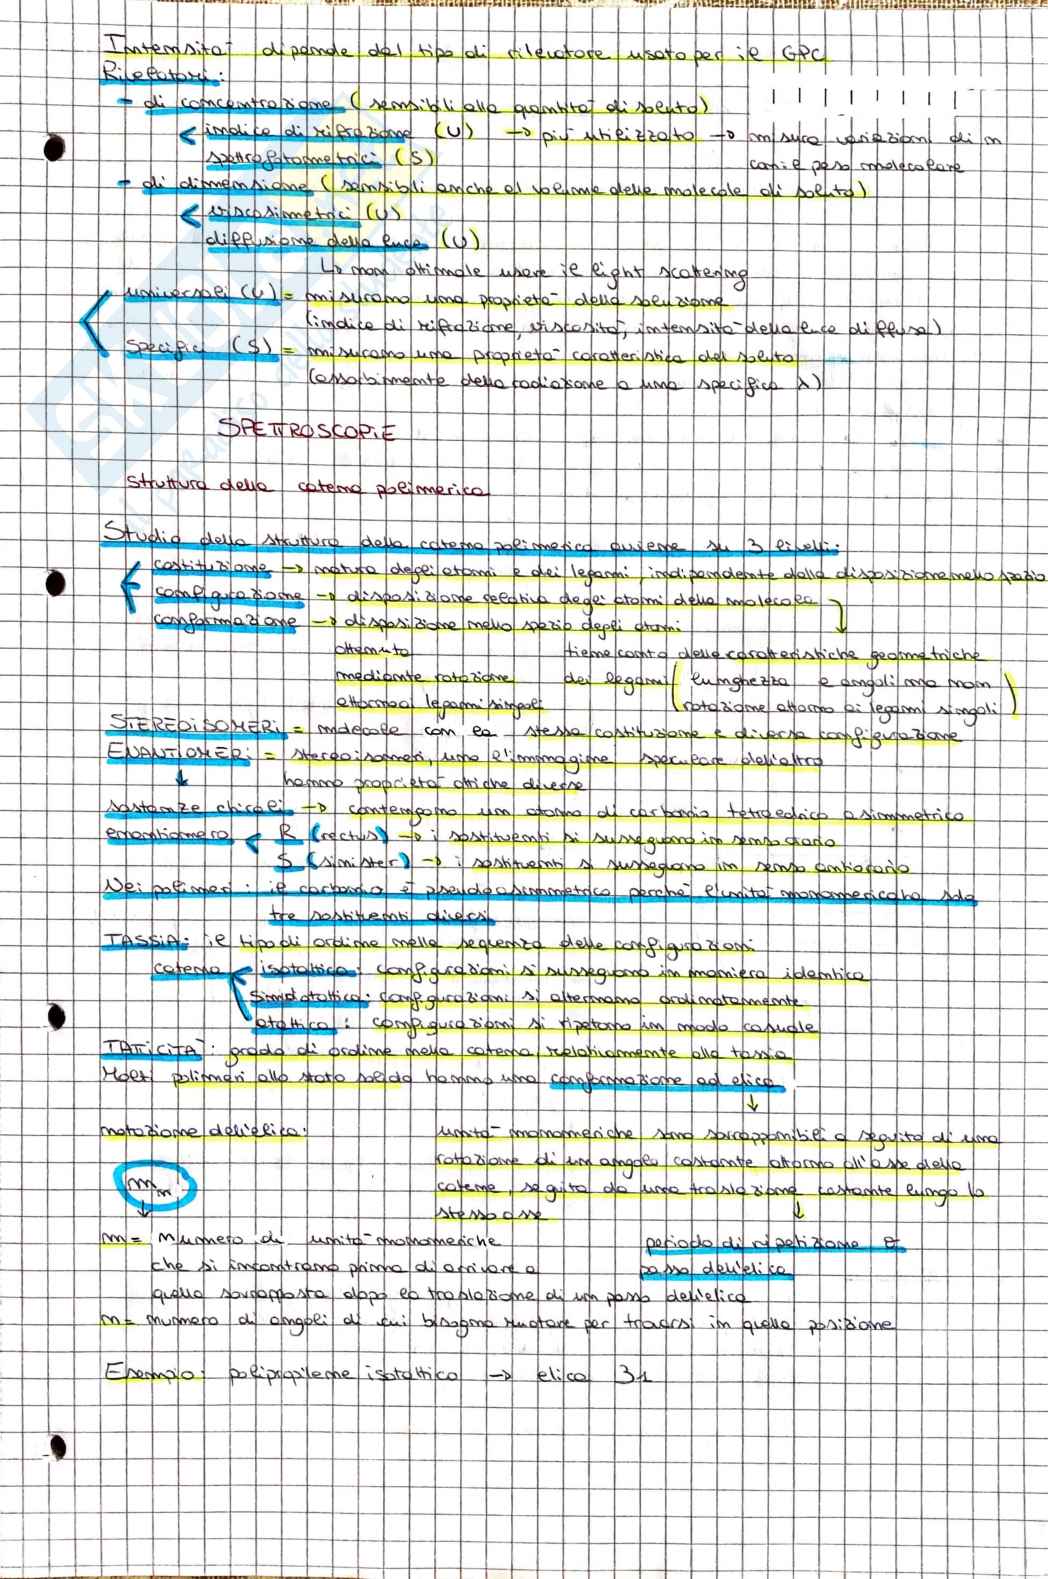 Intensità dipende dal tipo di rilevatore usato per il GPC
Rilevatori:
- di concentrazione (sensibili alla quantità di soluto)
indice di rifrazione (U) → più utilizzato → misura variazioni di n
spettrofotometrici (S) con il peso molecolare
- di dimensione (sensibili anche al volume delle molecole di soluto)
viscosimetrici (U)
diffusione della luce (U)
↳ non ottimale usare il light scattering
universali (U) = misurano una proprietà della soluzione
(indice di rifrazione, viscosità, intensità della luce diffusa)
Specifici (S) = misurano una proprietà caratteristica del soluto
(assorbimento della radiazione a una specifica λ)
SPETTROSCOPIE
Struttura della catena polimerica
Studio della struttura della catena polimerica avviene su 3 livelli:
costituzione → natura degli atomi e dei legami, indipendente dalla disposizione nello spazio
configurazione → disposizione relativa degli atomi della molecola
conformazione → disposizione nello spazio degli atomi
ottenuta tiene conto delle caratteristiche geometriche
mediante rotazione dei legami (lunghezza e angoli ma non
attorno ai legami singoli rotazione attorno ai legami singoli)
STEREOISOMERI = molecole con la stessa costituzione e diversa configurazione
ENANTIOMERI = stereoisomeri, uno l'immagine speculare dell'altro
↓ hanno proprietà ottiche diverse
sostanze chirali → contengono un atomo di carbonio tetraedrico asimmetrico
enantiomero R (rectus) → i sostituenti si susseguono in senso orario
S (sinister) → i sostituenti si susseguono in senso antiorario
Nei polimeri: il carbonio è pseudoasimmetrico perché l'unità monomerica ha solo
tre sostituenti diversi
TASSIA: il tipo di ordine nella sequenza delle configurazioni
catena isotattica: configurazioni si susseguono in maniera identica
Sindiotattica: configurazioni si alternano ordinatamente
atattica: configurazioni si ripetono in modo casuale
TATTICITÀ: grado di ordine nella catena, relativamente alla tassia
Molti polimeri allo stato solido hanno una conformazione ad elica
↓
notazione dell'elica: unità monomeriche sono sovrapponibili a seguito di una
rotazione di un angolo costante attorno all'asse della
mn catena, seguita da una traslazione costante lungo lo
↓ stesso asse ↓
m = numero di unità monomeriche periodo di ripetizione o
che si incontrano prima di arrivare a passo dell'elica
quella sovrapposta dopo la traslazione di un passo dell'elica
n = numero di angoli di cui bisogna ruotare per trovarsi in quella posizione
Esempio: polipropilene isotattico → elica 31